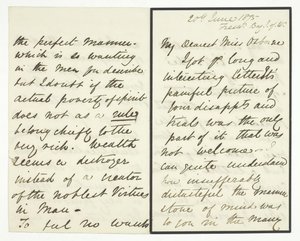 20th June 18
My Dearest Miss
Got yr long and
interesting letter this
painful picture of
your disappts and
trials was the only
part of it that was
not welcome. I
can quite understand
how insufferably
distasteful the manner
& tone of mind was
to you in the many
the perfect manner
which is so wanting
in the men you describe
but I doubt if the
actual poverty of spirit
does not as a rule
belong chiefly to the
very rich. Wealth
seems a destroyer
instead of a creator
of the noblest Virtues
in Man —
To feel no wants